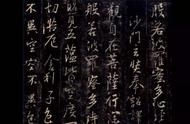 般若波羅蜜多心經
沙門玄奘奉詔譯
觀自在菩薩行深
般若波羅蜜多時
見五蘊皆空度
切苦厄舍利子
不異空空不異色